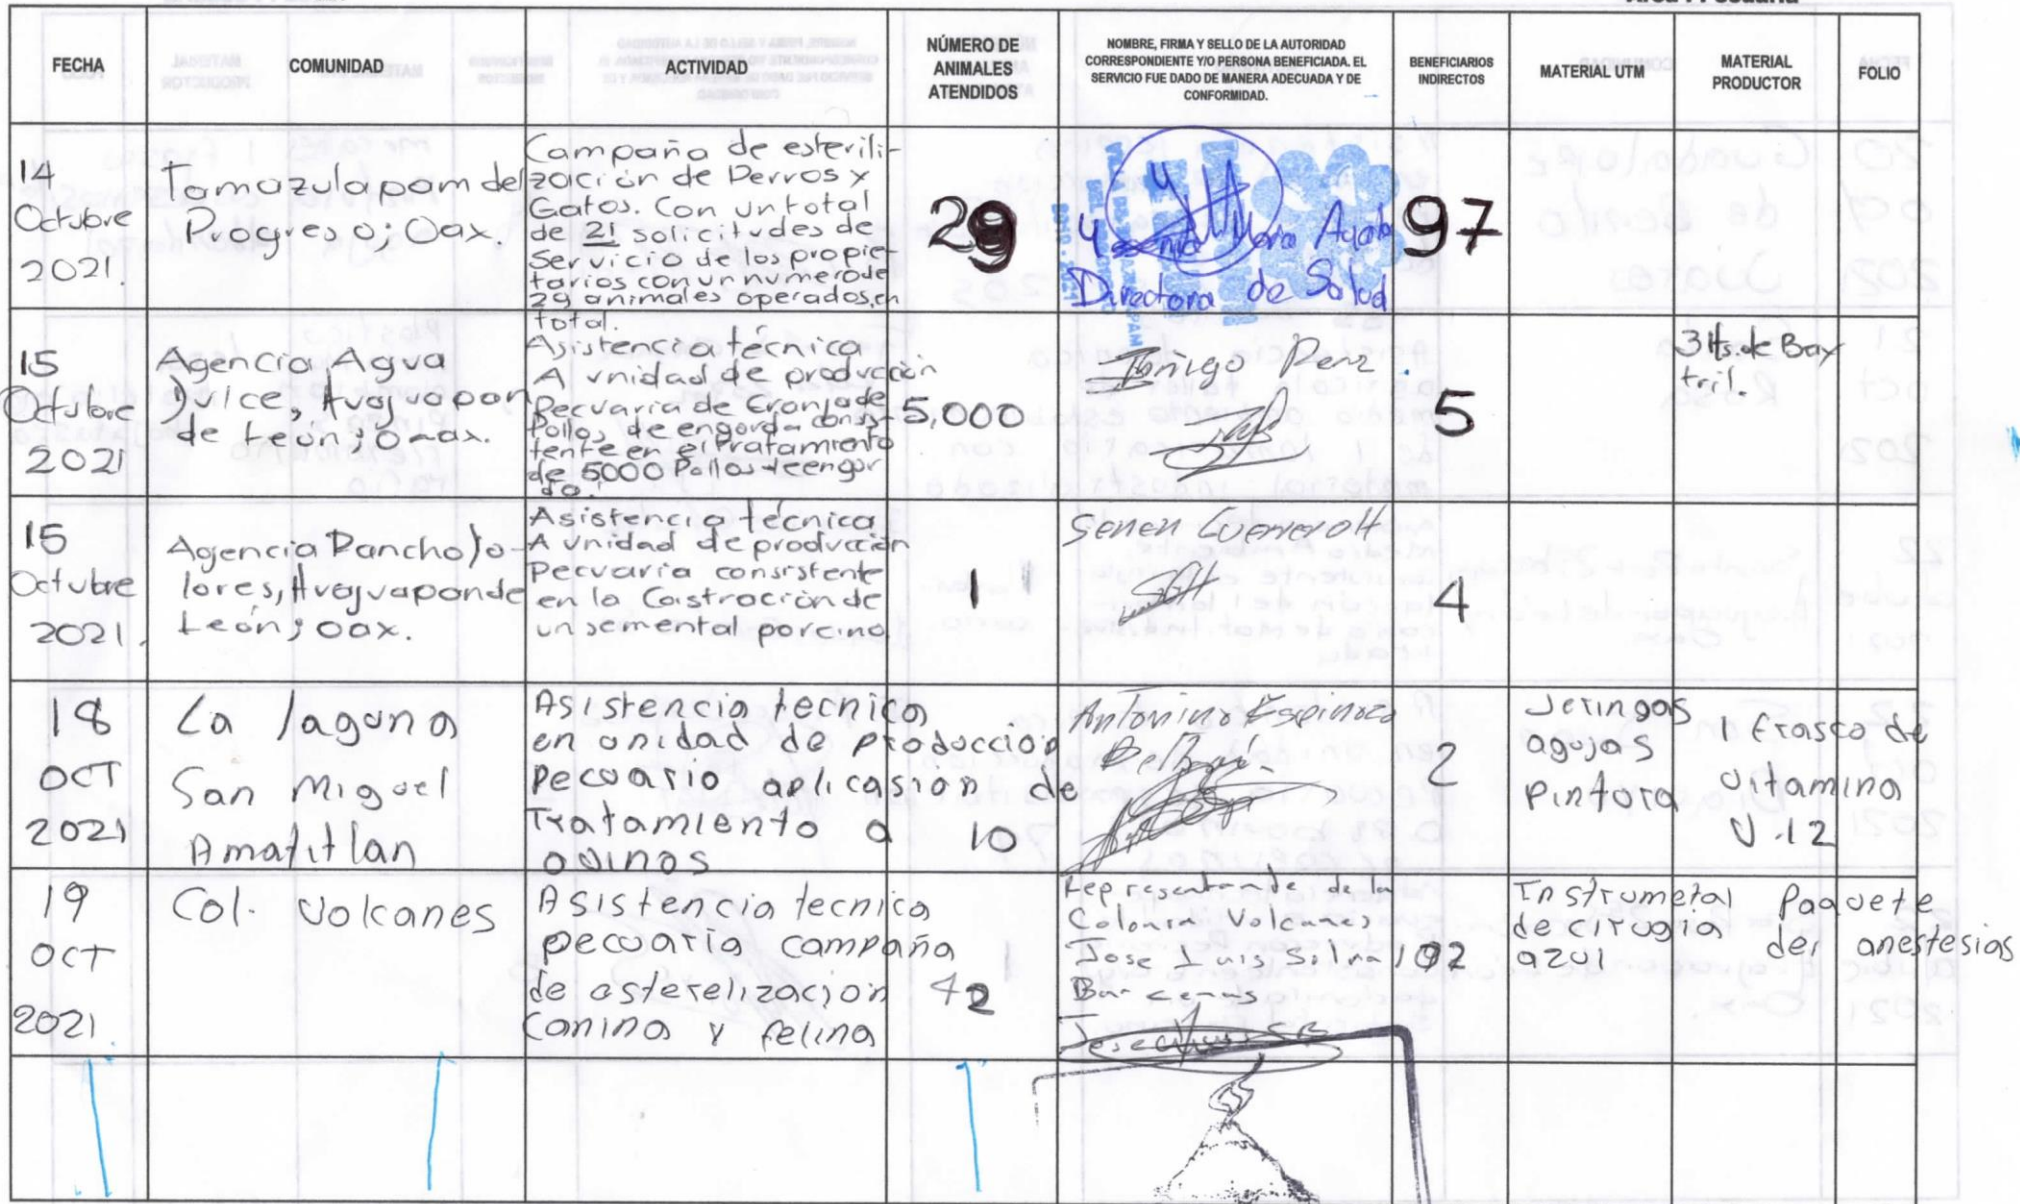 FECHA
COMUNIDAD
ACTIVIDAD
NÚMERO DE
ANIMALES
ATENDIDOS
NOMBRE, FIRMA Y SELLO DE LA AUTORIDAD
CORRESPONDIENTE Y/O PERSONA BENEFICIADA. EL
SERVICIO FUE DADO DE MANERA ADECUADA Y DE
CONFORMIDAD.
BENEFICIARIOS
INDIRECTOS
MATERIAL UTM
MATERIAL
PRODUCTOR
FOLIO
14
Octubre
2021.
Tamazulapam del
Progreso; Oax.
Campaña de esterili-
zación de Perros y
Gatos. Con un total
de 21 solicitudes de
Servicio de los propie-
tarios con un numero de
29 animales operados, en
total.
29
Directora de Salud
97
15
Octubre
2021
Agencia Agua
Dulce, Huajuapan
de León; Oax.
Asistencia técnica
A unidad de producción
Pecuaria de Granja de
Pollos de engorda consis-
tente en el tratamiento
de 5000 Pollos de engor
da.
5,000
Iñigo Perz.
5
3 lts. de Bay
tril.
15
Octubre
2021.
Agencia Rancho Jo-
lores, Huajuapan de
León; Oax.
Asistencia técnica
A unidad de producción
Pecuaria consistente
en la Castración de
un semental porcino.
1
Senen Guerrero H
4
18
OCT
2021
La laguna
San Miguel
Amatitlan
Asistencia tecnica
en unidad de producción
pecuario aplicasion de
Tratamiento a
ovinos
10
Antonino Espinoza
2
Jeringas
agujas
Pintura
1 frasco de
vitamina
V.12
19
OCT
2021
Col. Volcanes
Asistencia tecnica
pecuaria campaña
de esterelización
canina y felina
42
Representante de la
Colonia Volcanes
Jose Luis Silva
Barcenas
102
Instrumetal
de cirugia
azul
Paquete
de anestesias